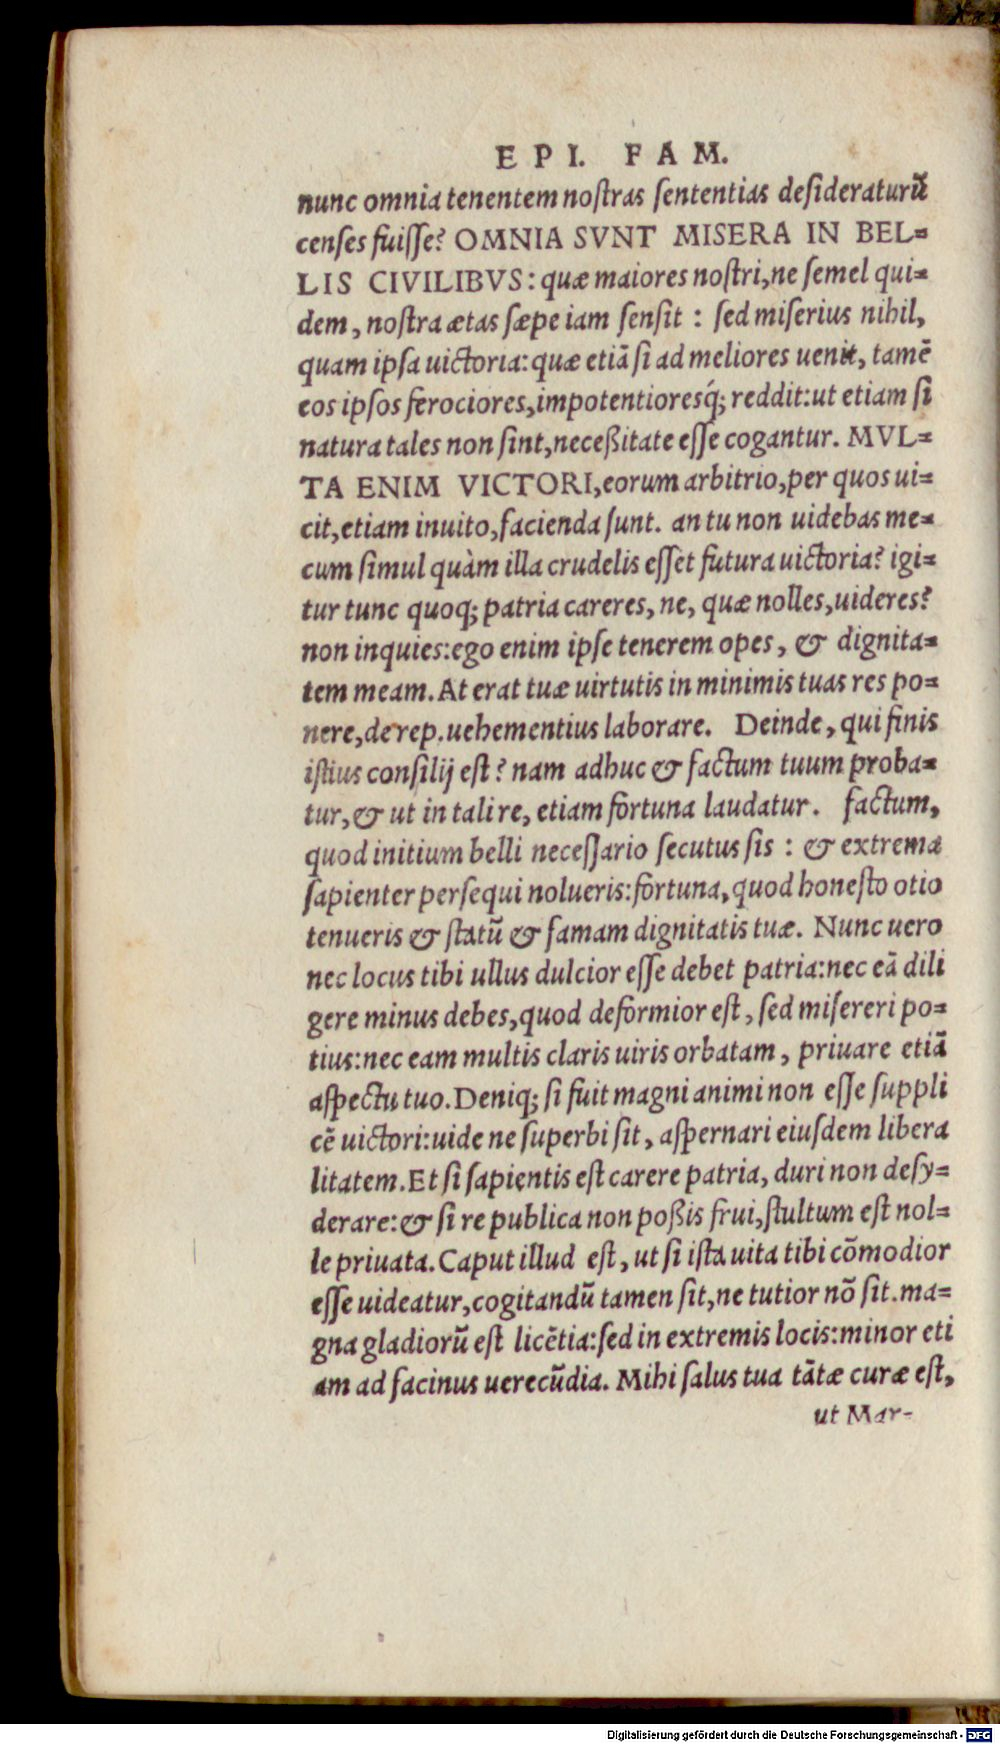 EPI. FAM.
nunc omnia tenentem noſtras ſententias deſideraturũ
cenſes fuiſſe? OMNIA SVNT MISERA IN BEL=
LIS CIVILIBVS: quæ maiores noſtri, ne ſemel qui=
dem, noſtra ætas ſæpe iam ſenſit: ſed miſerius nihil,
quam ipſa uictoria: quæ etiã ſi ad meliores uenit, tamẽ
eos ipſos ferociores, impotentioresq́; reddit: ut etiam ſi
natura tales non ſint, neceßitate eſſe cogantur. MVL=
TA ENIM VICTORI, eorum arbitrio, per quos ui=
cit, etiam inuito, facienda ſunt. an tu non uidebas me=
cum ſimul quàm illa crudelis eſſet futura uictoria? igi=
tur tunc quoq; patria careres, ne, quæ nolles, uideres?
non inquies: ego enim ipſe tenerem opes, & dignita=
tem meam. At erat tuæ uirtutis in minimis tuas res po=
nere, de rep. uehementius laborare. Deinde, qui finis
iſtius conſilij eſt? nam adhuc & factum tuum proba=
tur, & ut in tali re, etiam fortuna laudatur. factum,
quod initium belli neceſſario ſecutus ſis: & extrema
ſapienter perſequi nolueris: fortuna, quod honeſto otio
tenueris & ſtatũ & famam dignitatis tuæ. Nunc uero
nec locus tibi ullus dulcior eſſe debet patria: nec eã dili
gere minus debes, quod deformior eſt, ſed miſereri po=
tius: nec eam multis claris uiris orbatam, priuare etiã
aſpectu tuo. Deniq; ſi fuit magni animi non eſſe ſuppli
cẽ uictori: uide ne ſuperbi ſit, aſpernari eiuſdem libera
litatem. Et ſi ſapientis eſt carere patria, duri non deſy=
derare: & ſi re publica non poßis frui, ſtultum eſt nol=
le priuata. Caput illud eſt, ut ſi iſta uita tibi cõmodior
eſſe uideatur, cogitandũ tamen ſit, ne tutior nõ ſit. ma=
gna gladiorũ eſt licẽtia: ſed in extremis locis: minor eti
am ad facinus uerecũdia. Mihi ſalus tua tãtæ curæ eſt,
ut Mar-
Digitalisierung gefördert durch die Deutsche Forschungsgemeinschaft - DFG